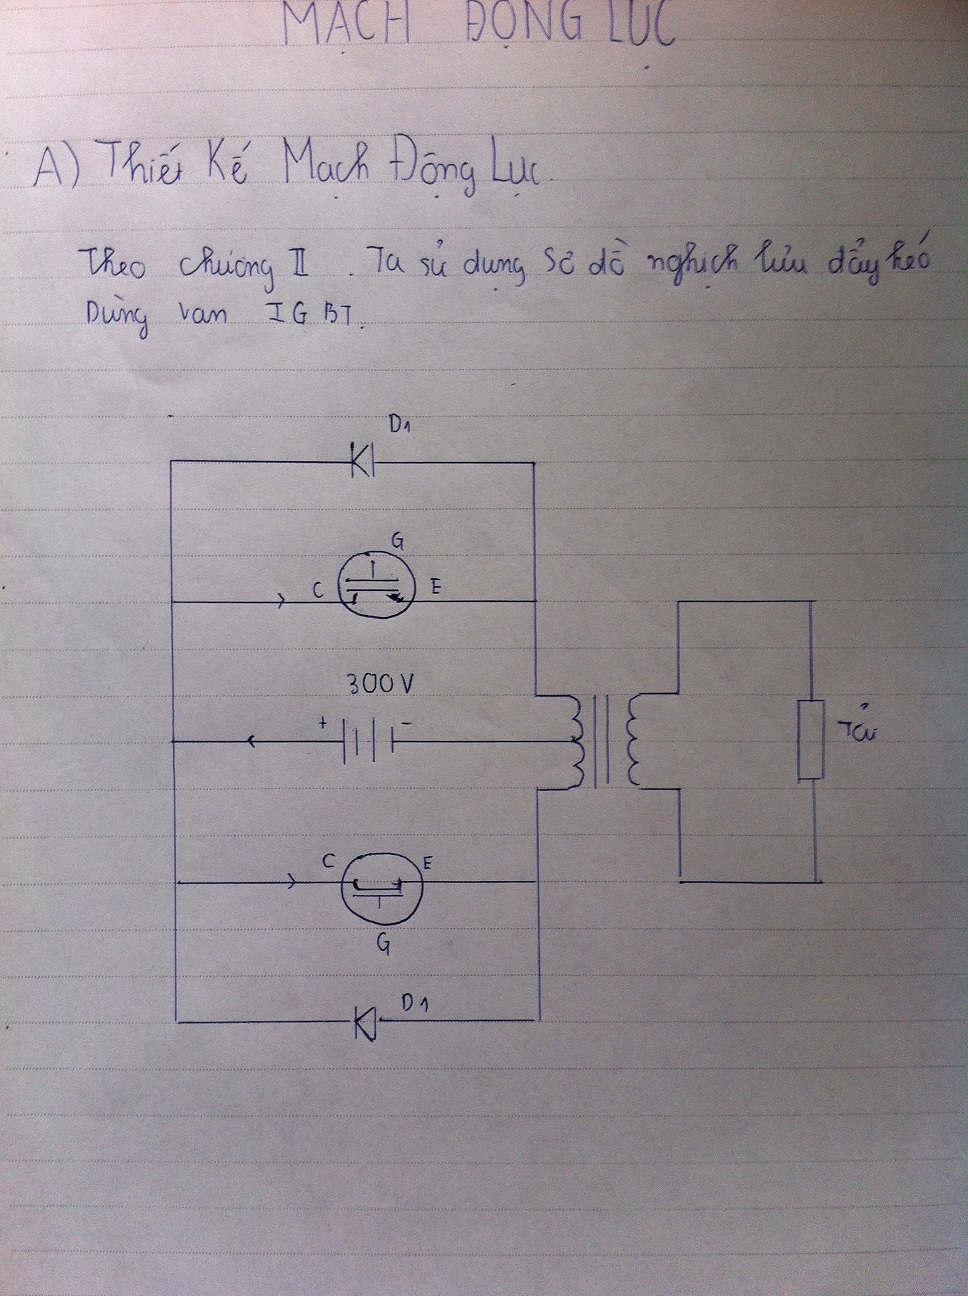 MẠCH ĐỘNG LỰC
A) Thiết Kế Mạch Động Lực.
Theo chương II. Ta sử dụng Sơ đồ nghịch lưu đẩy kéo
Dùng van IGBT.
D1
G
C E
300V
+ -
Tải
C E
G
D1